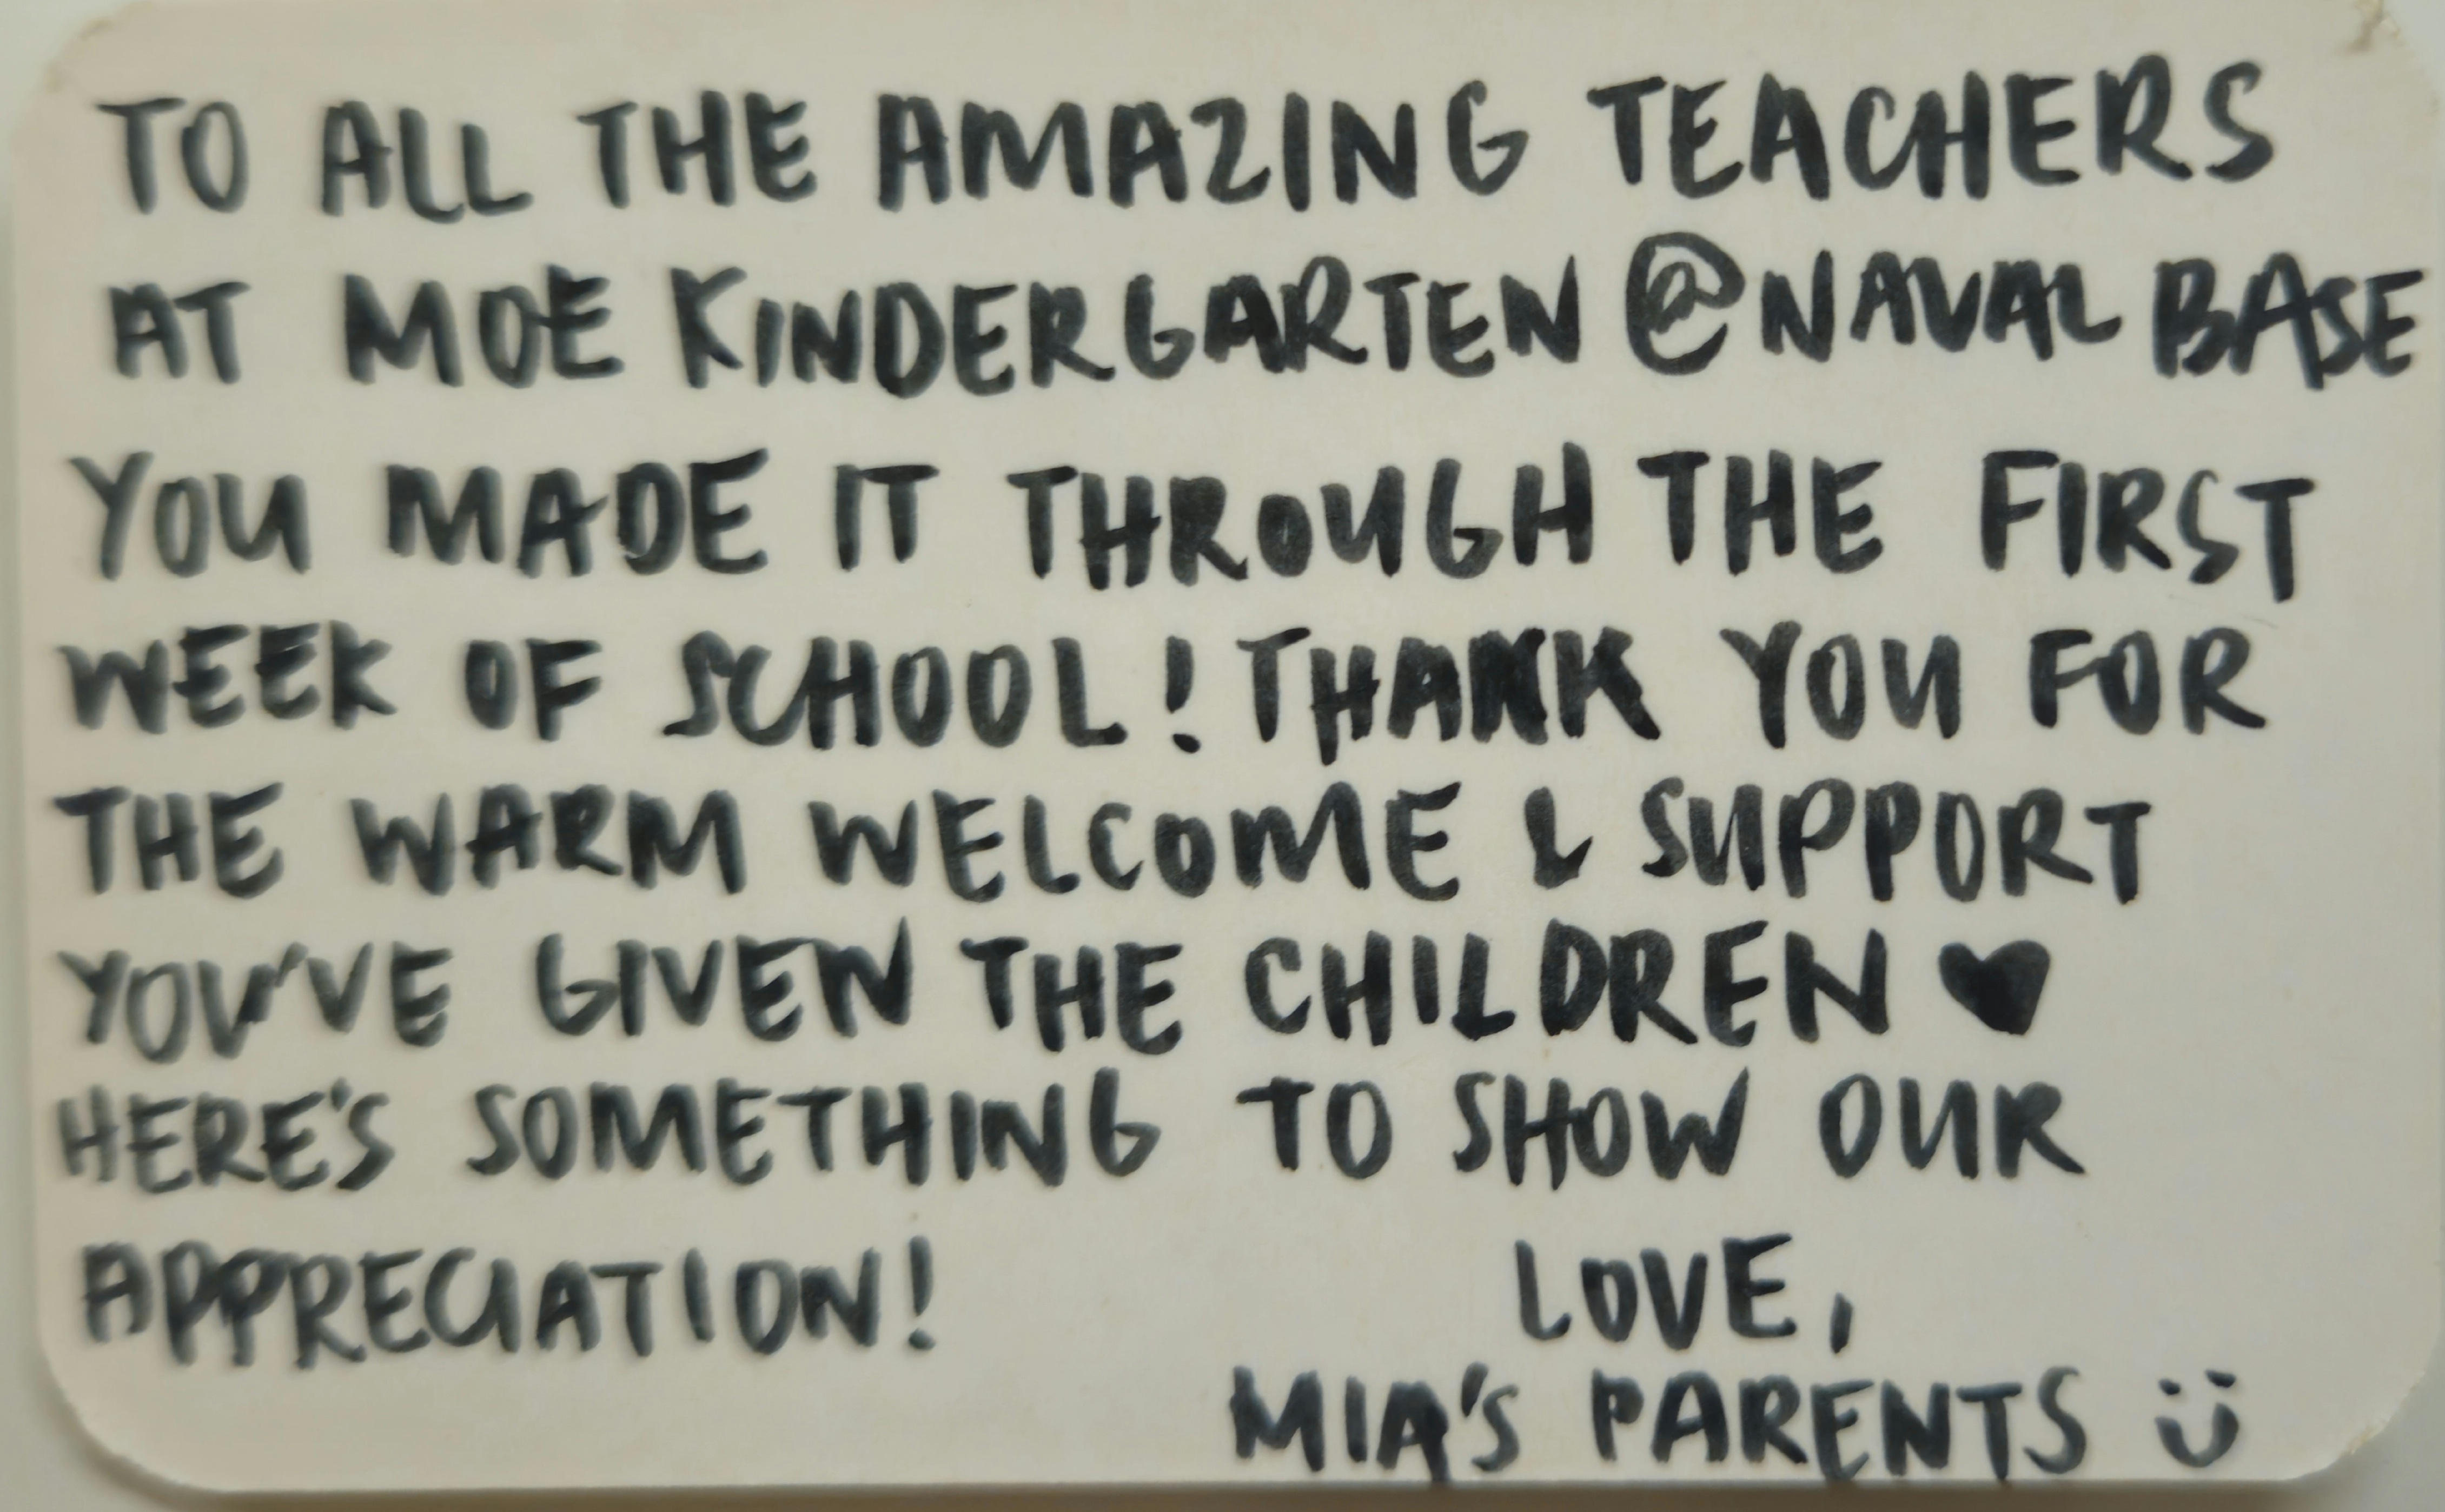 TO ALL THE AMAZING TEACHERS
AT MOE KINDERGARTEN @NAVAL BASE
YOU MADE IT THROUGH THE FIRST
WEEK OF SCHOOL! THANK YOU FOR
THE WARM WELCOME & SUPPORT
YOU'VE GIVEN THE CHILDREN ♥
HERE'S SOMETHING TO SHOW OUR
APPRECIATION!
LOVE,
MIA'S PARENTS Ü